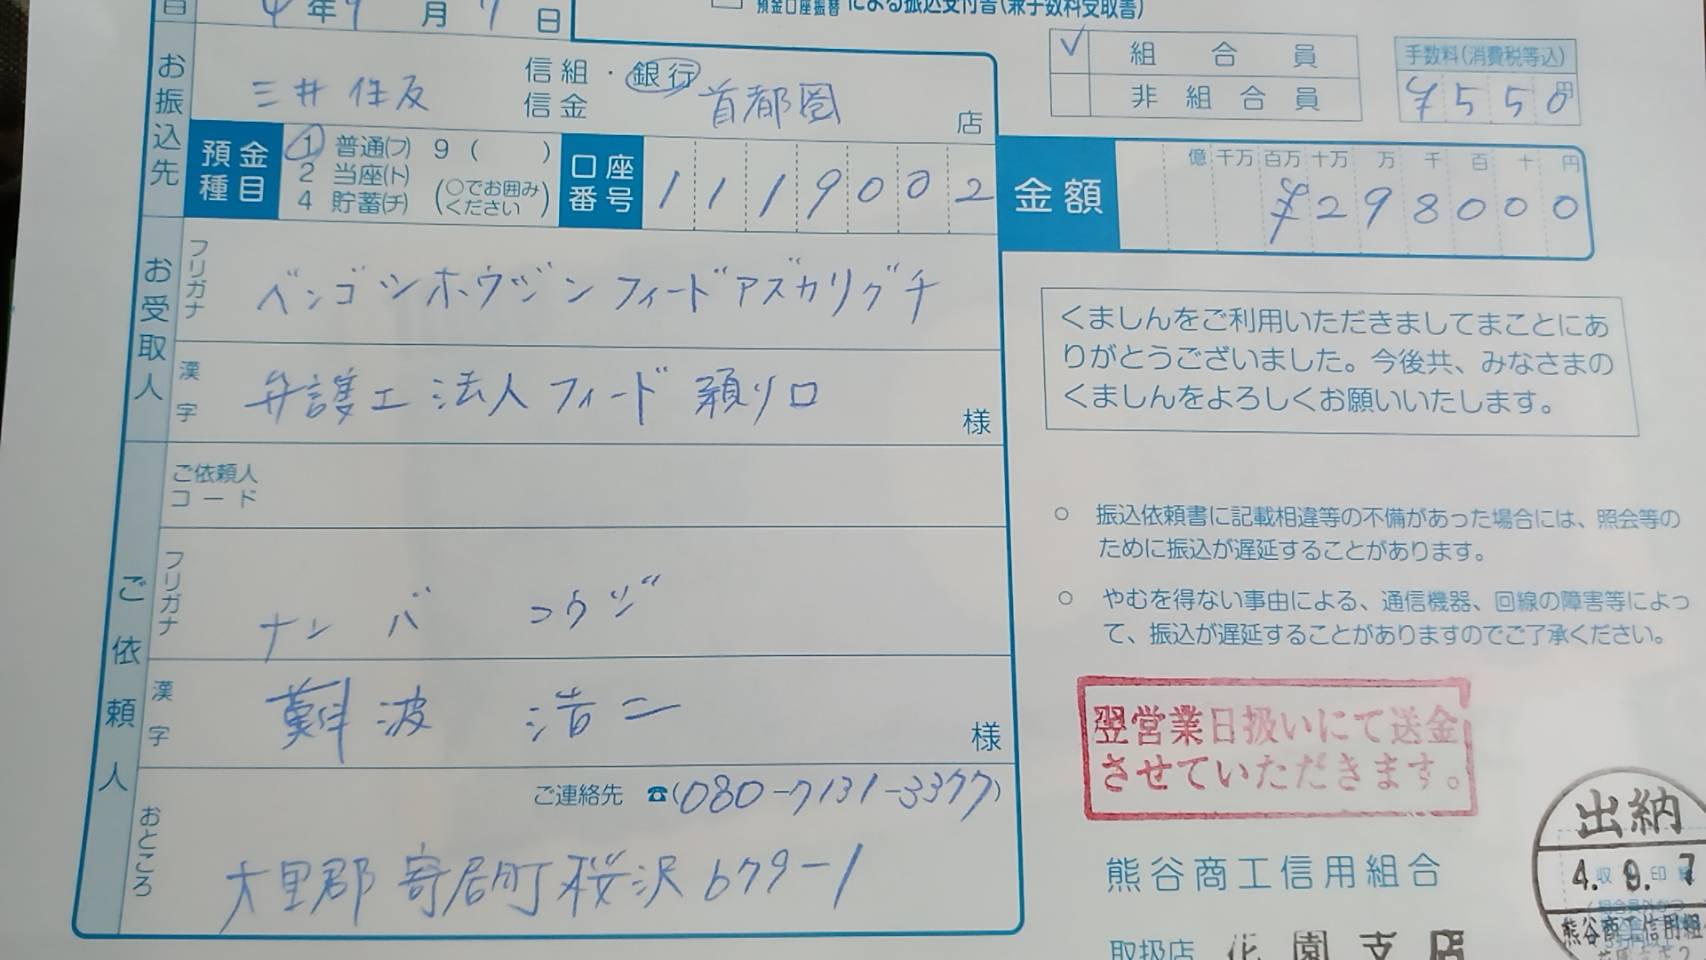 4年9月7日
預金口座振替による振込受付書(兼手数料受取書)
お振込先
三井住友
信組・銀行
信金
首都圏
店
預金種目
1 普通(フ) 9( )
2 当座(ト)
4 貯蓄(チ)
(○でお囲みください)
口座番号
1119002
お受取人
フリガナ
ベンゴシホウジンフィードアズカリグチ
漢字
弁護士法人フィード預リ口
様
ご依頼人コード
ご依頼人
フリガナ
ナンバ コウジ
漢字
難波 浩二
様
おところ
ご連絡先 ☎(080-7131-3377)
大里郡寄居町桜沢679-1
✓ 組合員
非組合員
手数料(消費税等込)
¥550円
金額
億 千万 百万 十万 万 千 百 十 円
¥298000
くましんをご利用いただきましてまことにあ
りがとうございました。今後共、みなさまの
くましんをよろしくお願いいたします。
○ 振込依頼書に記載相違等の不備があった場合には、照会等の
ために振込が遅延することがあります。
○ やむを得ない事由による、通信機器、回線の障害等によっ
て、振込が遅延することがありますのでご了承ください。
翌営業日扱いにて送金
させていただきます。
熊谷商工信用組合
取扱店 花園支店
出納
4.9.7
熊谷商工信用組